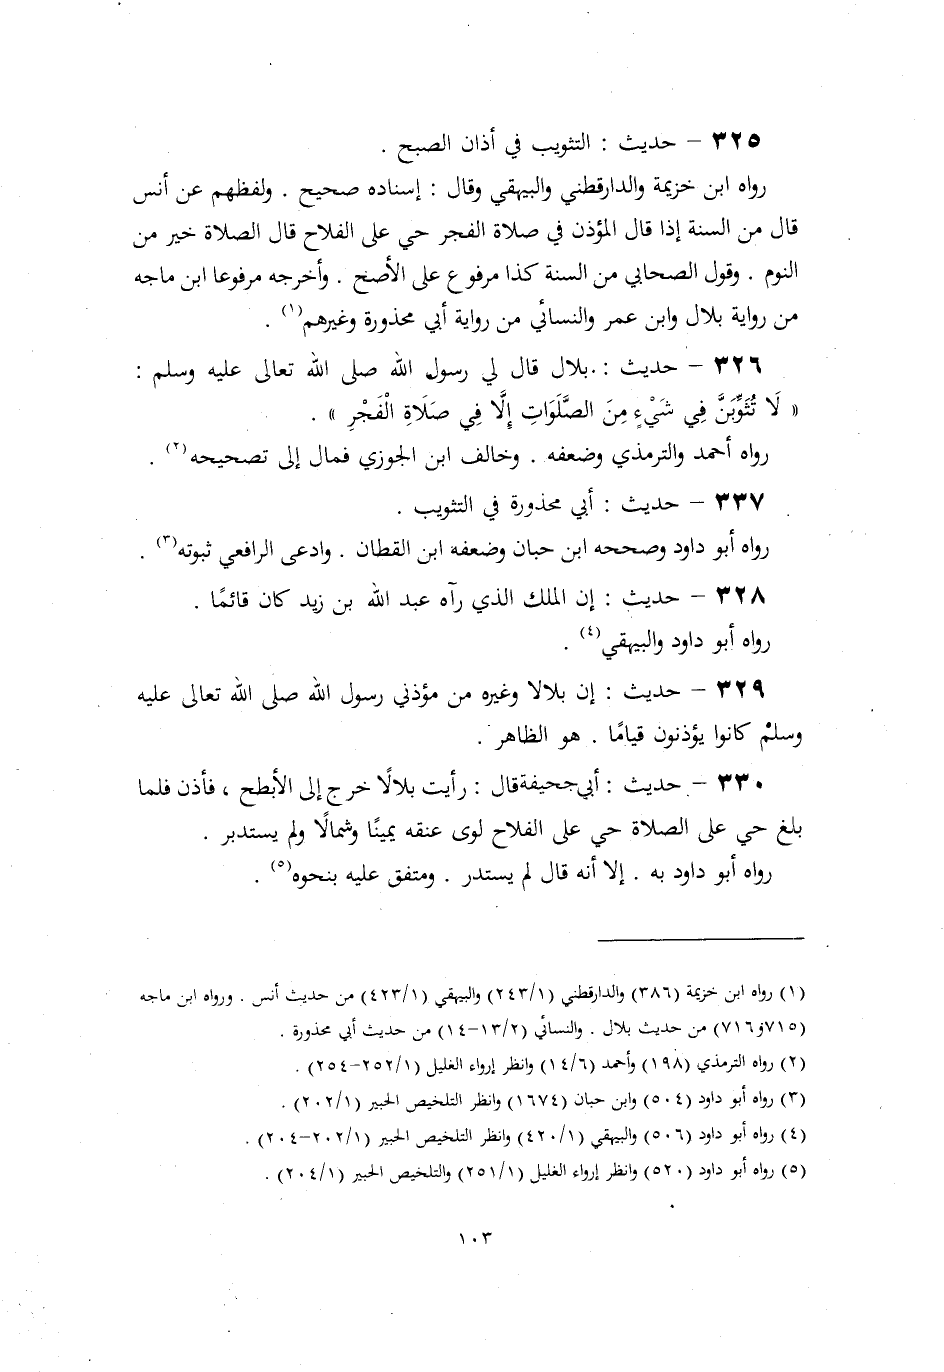 ٣٢٥ – حديث : التثويب في أذان الصبح .
رواه ابن خزيمة والدارقطني والبيهقي وقال : إسناده صحيح . ولفظهم عن أنس
قال من السنة إذا قال المؤذن في صلاة الفجر حي على الفلاح قال الصلاة خير من
النوم . وقول الصحابي من السنة كذا مرفوع على الأصح . وأخرجه مرفوعا ابن ماجه
من رواية بلال وابن عمر والنسائي من رواية أبي محذورة وغيرهم(١) .
٣٢٦ – حديث : بلال قال لي رسول الله صلى الله تعالى عليه وسلم :
« لَا تُثَوِّبَنَّ فِي شَيْءٍ مِنَ الصَّلَوَاتِ إِلَّا فِي صَلَاةِ الْفَجْرِ » .
رواه أحمد والترمذي وضعفه . وخالف ابن الجوزي فمال إلى تصحيحه(٢) .
٣٣٧ – حديث : أبي محذورة في التثويب .
رواه أبو داود وصححه ابن حبان وضعفه ابن القطان . وادعى الرافعي ثبوته(٣) .
٣٢٨ – حديث : إن الملك الذي رآه عبد الله بن زيد كان قائمًا .
رواه أبو داود والبيهقي(٤) .
٣٢٩ – حديث : إن بلالا وغيره من مؤذني رسول الله صلى الله تعالى عليه
وسلم كانوا يؤذنون قيامًا . هو الظاهر .
٣٣٠ – حديث : أبي جحيفة قال : رأيت بلالًا خرج إلى الأبطح ، فأذن فلما
بلغ حي على الصلاة حي على الفلاح لوى عنقه يمينًا وشمالًا ولم يستدبر .
رواه أبو داود به . إلا أنه قال لم يستدر . ومتفق عليه بنحوه(٥) .
(١) رواه ابن خزيمة (٣٨٦) والدارقطني (٢٤٣/١) والبيهقي (٤٢٣/١) من حديث أنس . ورواه ابن ماجه
(٧١٥و٧١٦) من حديث بلال . والنسائي (١٣/٢–١٤) من حديث أبي محذورة .
(٢) رواه الترمذي (١٩٨) وأحمد (١٤/٦) وانظر إرواء الغليل (٢٥٢/١–٢٥٤) .
(٣) رواه أبو داود (٥٠٤) وابن حبان (١٦٧٤) وانظر التلخيص الحبير (٢٠٢/١) .
(٤) رواه أبو داود (٥٠٦) والبيهقي (٤٢٠/١) وانظر التلخيص الحبير (٢٠٢/١–٢٠٤) .
(٥) رواه أبو داود (٥٢٠) وانظر إرواء الغليل (٢٥١/١) والتلخيص الحبير (٢٠٤/١) .
١٠٣